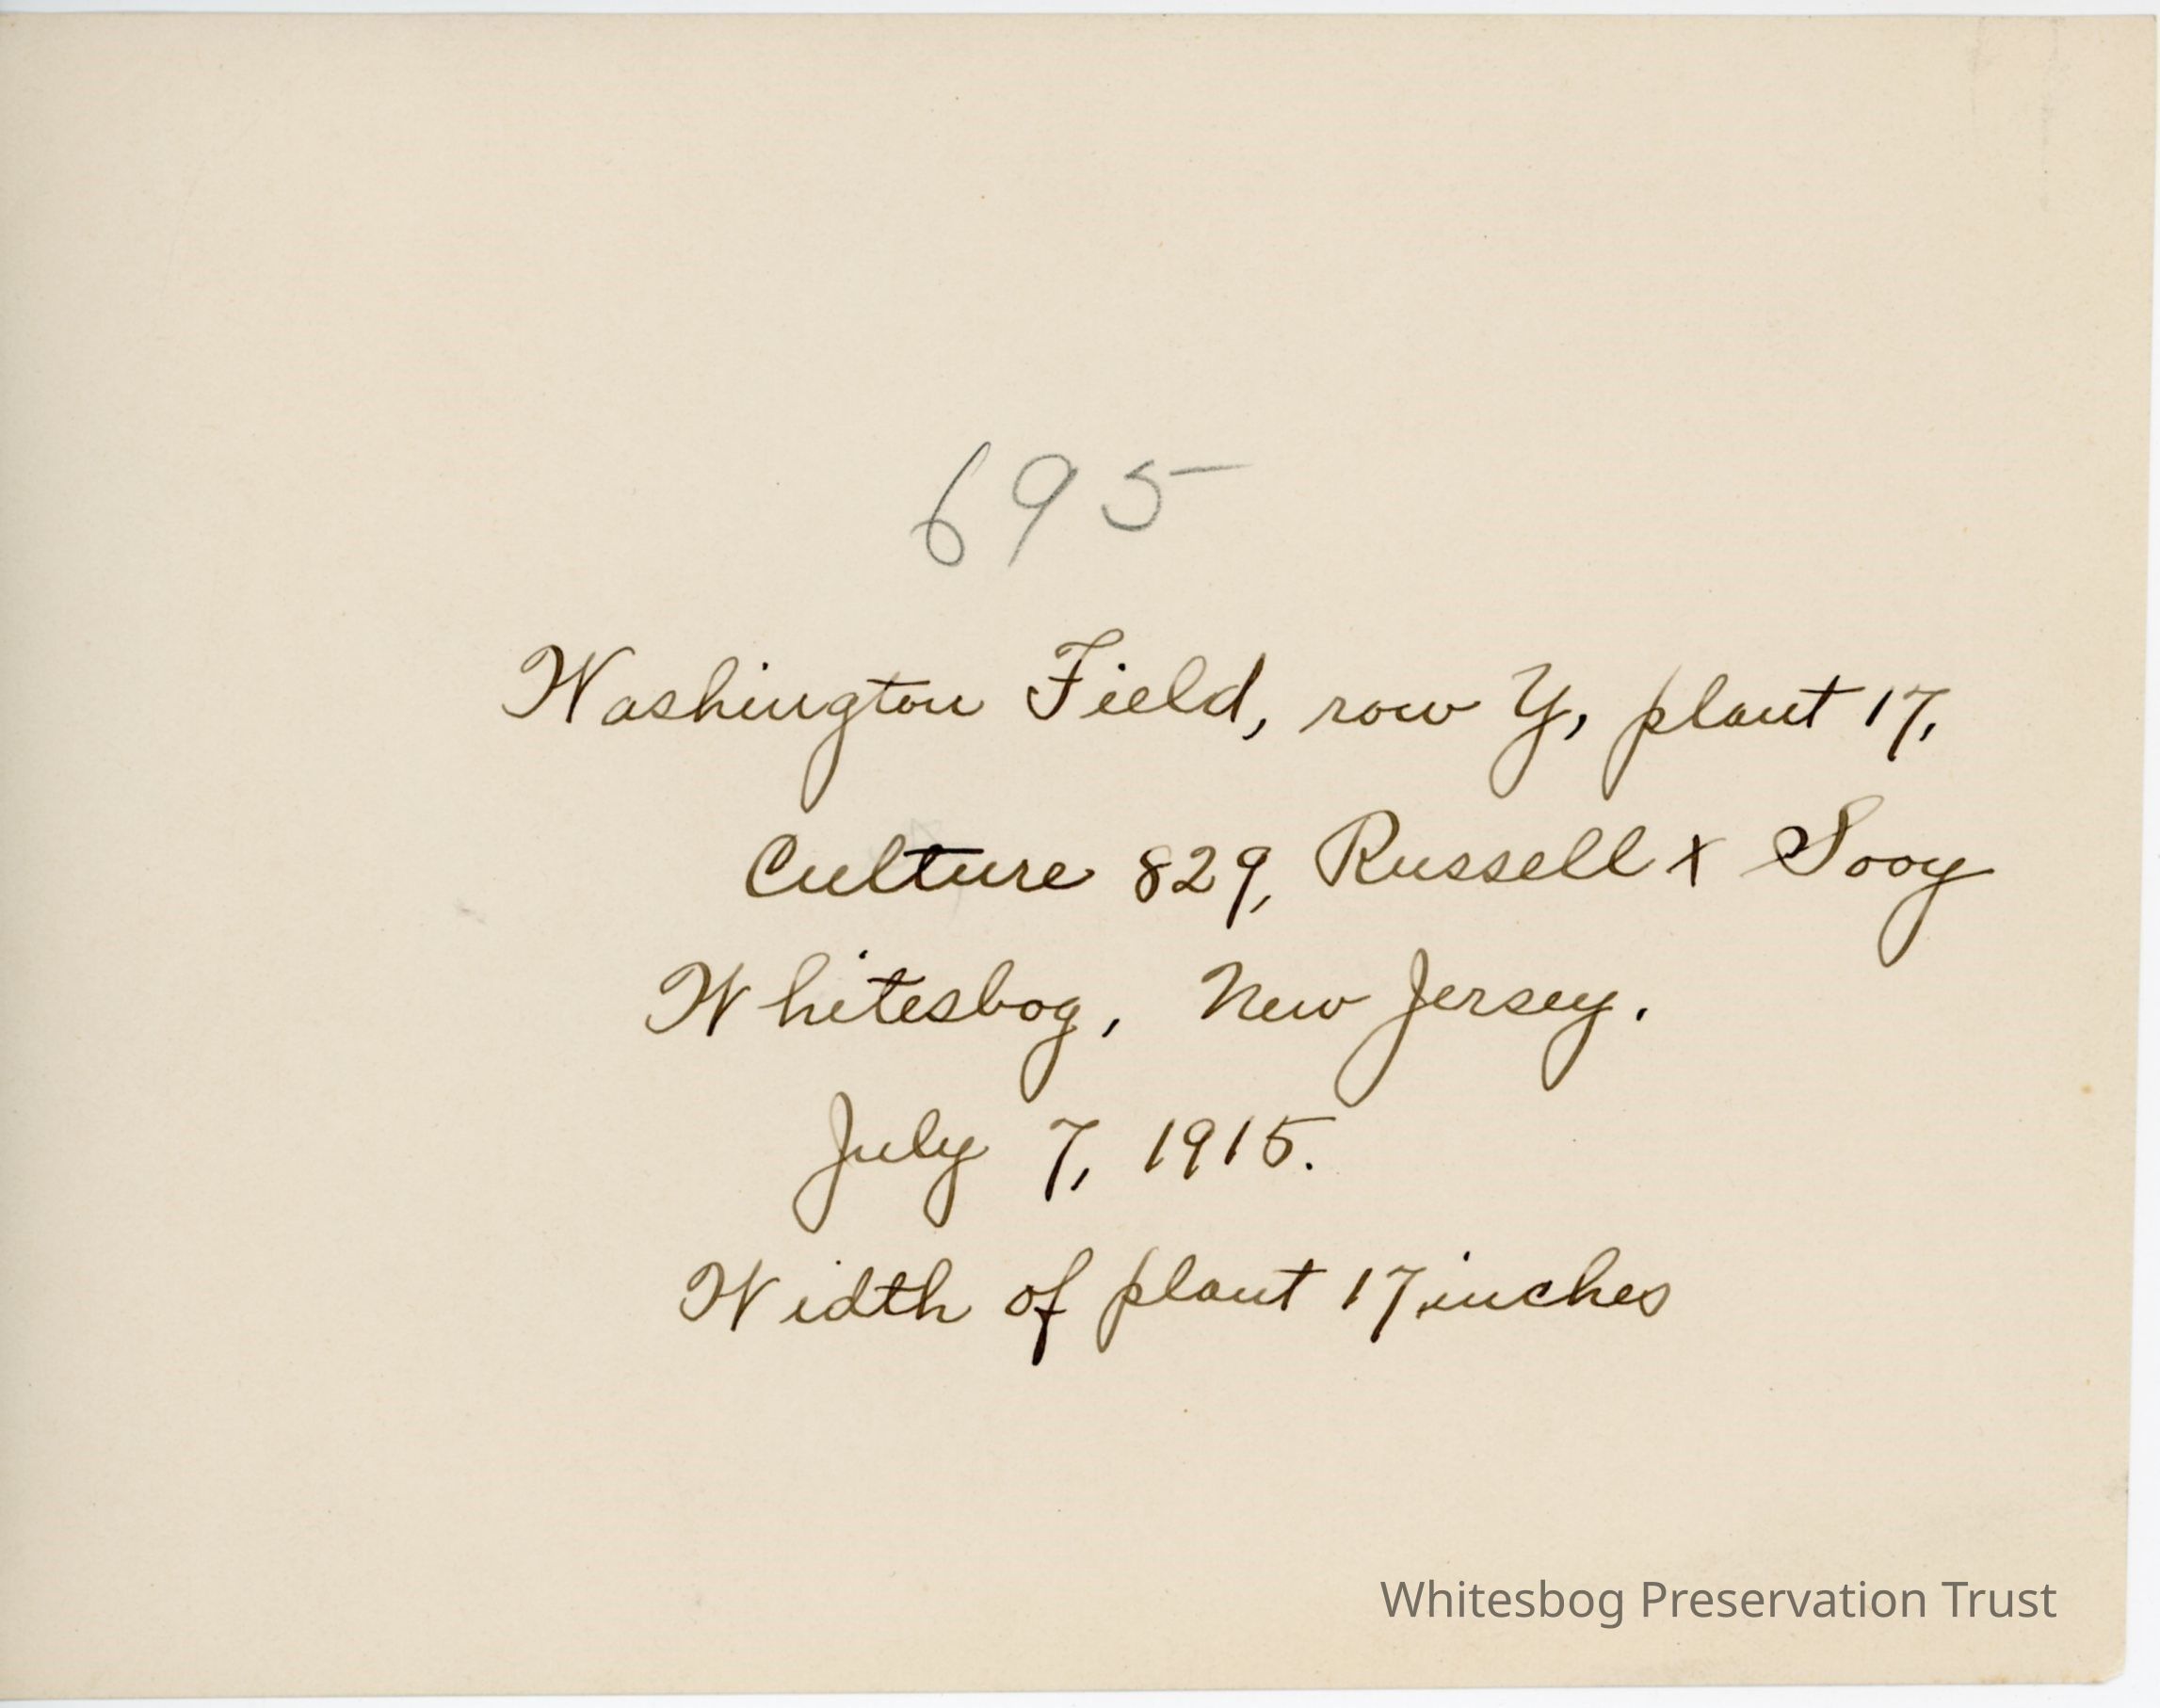 695
Washington Field, row Y, plant 17,
Culture 829, Russell x Sooy
Whitesbog, New Jersey.
July 7, 1915.
Width of plant 17 inches
Whitesbog Preservation Trust